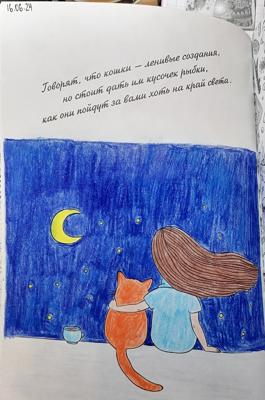 16.06.24
Говорят, что кошки — ленивые создания,
но стоит дать им кусочек рыбки,
как они пойдут за вами хоть на край света.